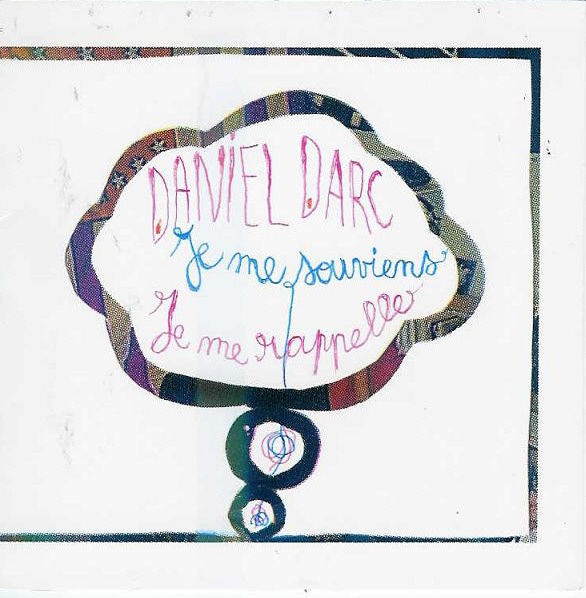 DANIEL DARC
Je me souviens
Je me rappelle